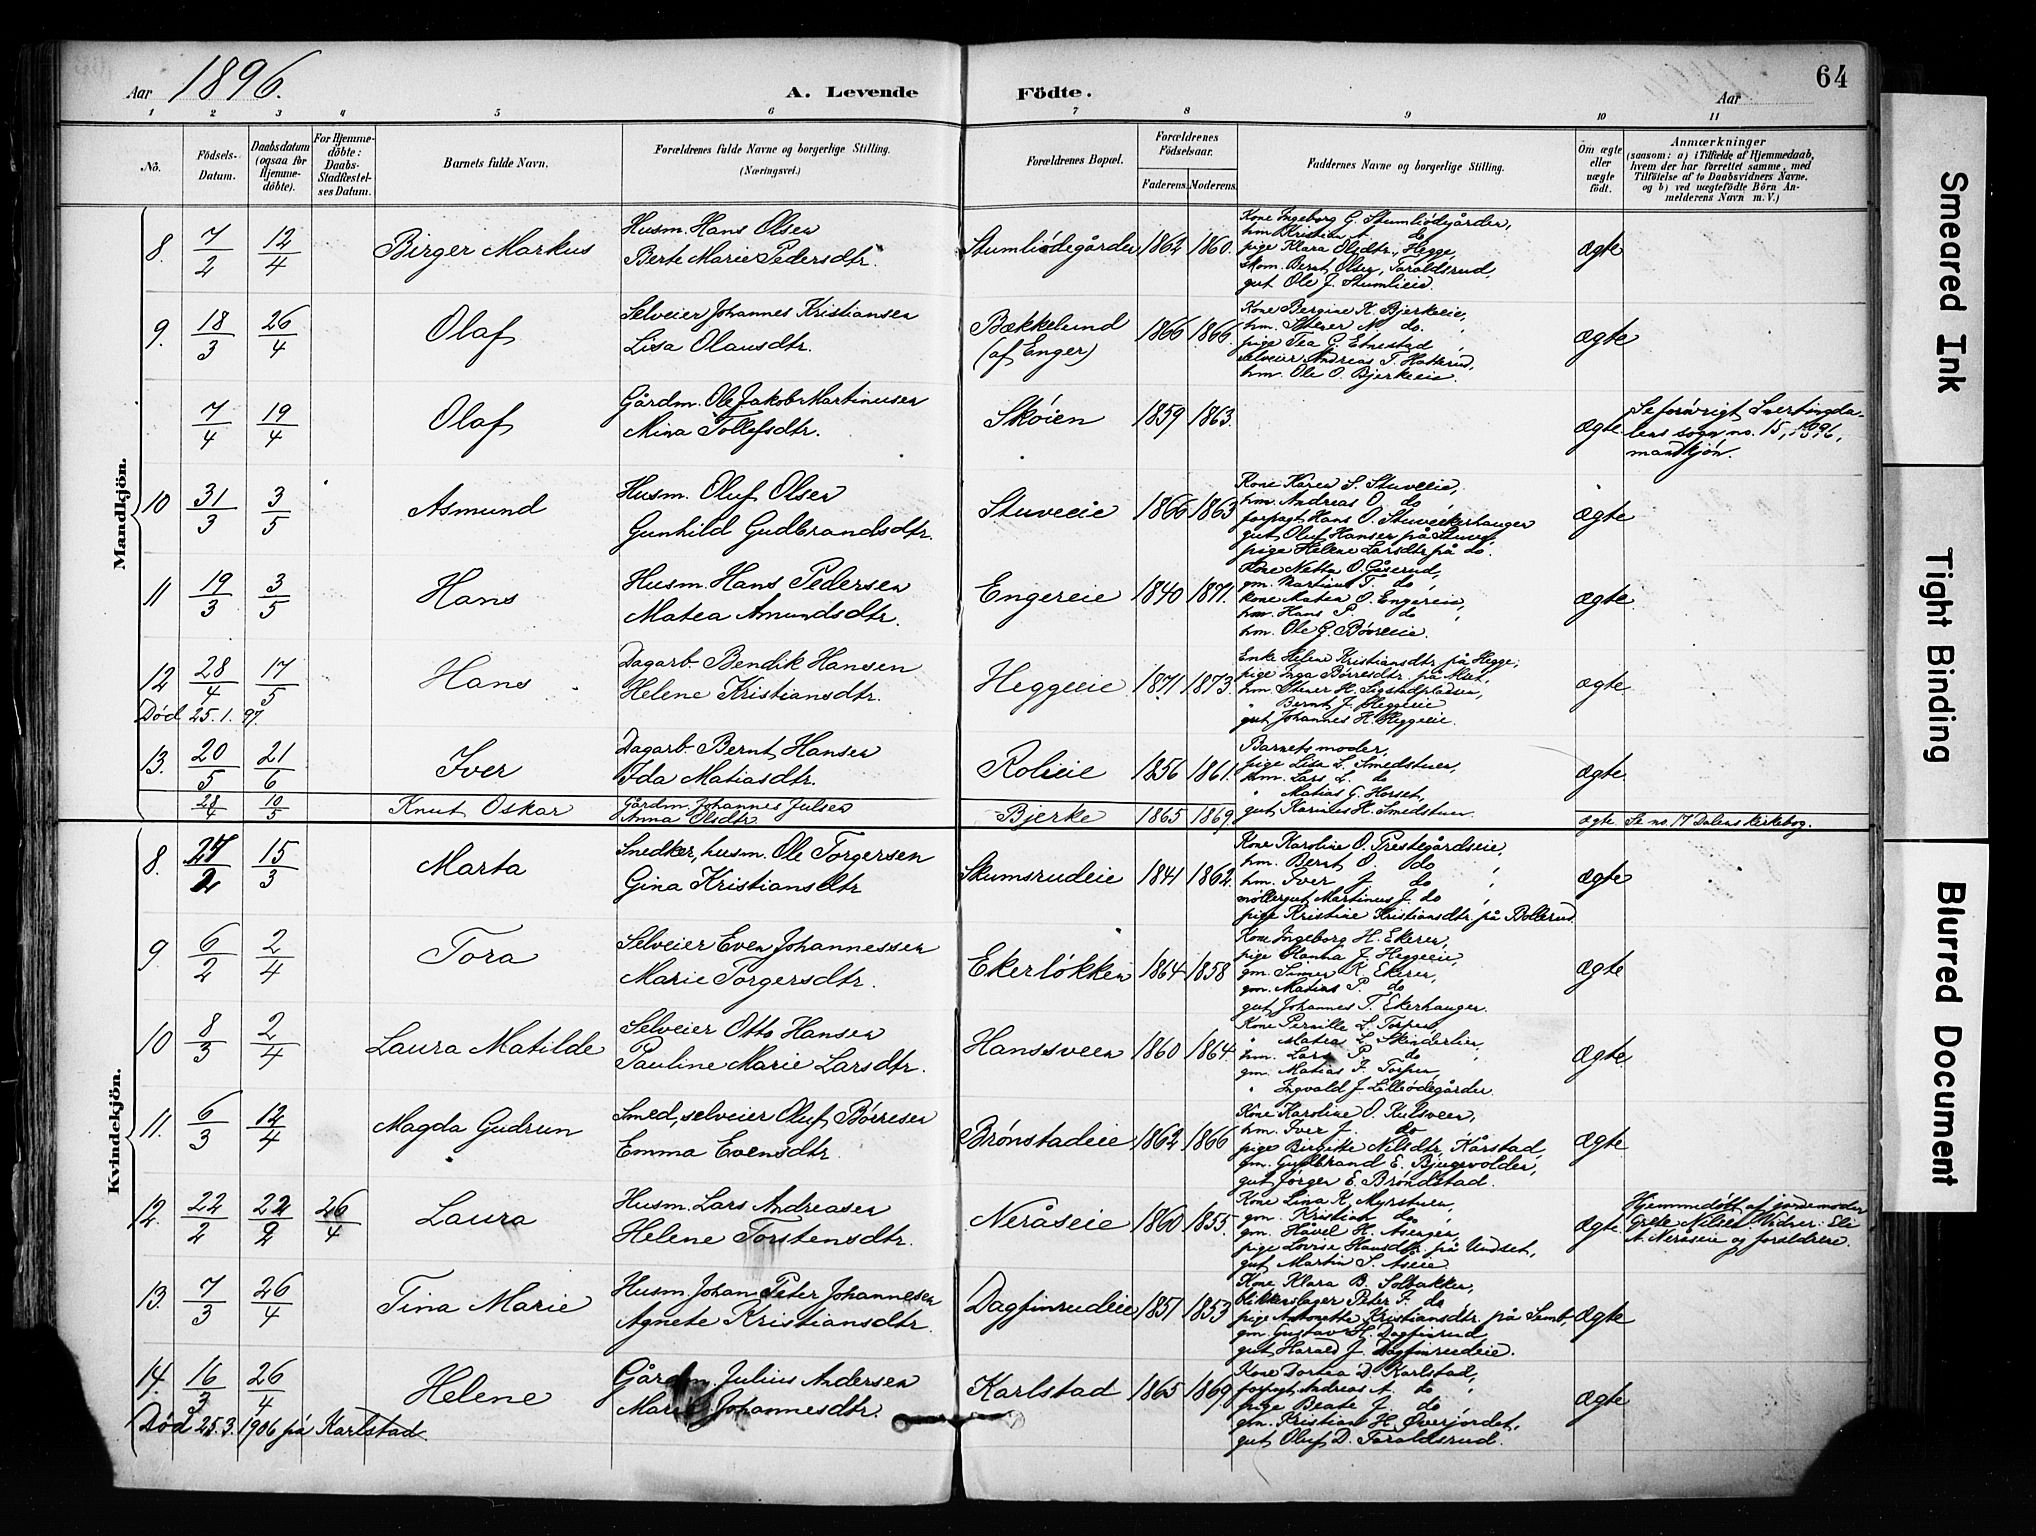 Aar 1896.
A. Levende Födte.
64
Aar
1 2 3 4 5 6 7 8 9 10 11
No.
Födsels-Datum.
Daabsdatum (ogsaa for Hjemme-döbte).
For Hjemme-döbte: Daabs-Stadfæstel-ses Datum.
Barnets fulde Navn.
Forældrenes fulde Navne og borgerlige Stilling.
(Næringsvei.)
Forældrenes Bopæl.
Forældrenes Födselsaar.
Faderens. Moderens.
Faddernes Navne og borgerlige Stilling.
Om ægte eller uægte födt.
Anmærkninger
(saasom: a) i Tilfælde af Hjemmedaab,
hvem der har forrettet samme, med
Tilföielse af to Daabsvidners Navne,
og b) ved uægtefödte Börn An-
melderens Navn m. V.)
Mandkjön.
8. 7/2 12/4 Birger Markus
Husm. Hans Olsen
Berte Marie Pedersdtr.
Stumliödegården 1862 1860.
Kone Ingeborg G. Stumliödegården,
hm. Kristian A. do
pige Klara Olsdtr., Hegge,
Skom. Bernt Olsen, Taraldsrud,
gut Ole J. Stumlieie.
ægte
9. 18/3 26/4 Olaf
Selveier Johannes Kristiansen
Lisa Olausdtr.
Bækkelund
(af Enger)
1866 1866.
Kone Bergine K. Bjerkeeie,
hm. Stener N. do.
pige Tea G. Etnestad
selveier Andreas T. Hatterud,
hm. Ole O. Bjerkeeie.
ægte
7/4 19/4 Olaf
Gårdm. Ole Jakob Martinusen
Mina Tollefsdtr.
Skøien 1859 1863.
ægte.
Se forøvrigt Svertingda-
lens sogn no. 15, 1896,
mandkjøn.
10 31/3 3/5 Asmund
Husm. Oluf Olsen
Gunhild Gudbrandsdtr.
Stuveeie 1866 1863
Kone Karen S. Stuveeie,
hm. Andreas O. do,
forpagt. Hans O. Stuveekerhaugen
gut Oluf Hansen på Stuve,
pige Helene Larsdtr på do.
ægte
11 19/3 3/5 Hans
Husm. Hans Pedersen
Matea Amundsdtr.
Engereie 1840 1871.
Kone Netta O. Gåserud,
gm. Martinus T. do,
kone Matea O. Engereie,
hm. Hans P. do
hm. Ole G. Bøveeie.
ægte
12 28/4 17/5 Hans
Død 25.1.97.
Dagarb. Bendik Hansen
Helene Kristiansdtr.
Heggeeie 1871 1873.
Enke Helene Kristiansdtr på Hegge,
pige Inga Børresdtr. på Alset,
hm. Stener H. Sigstadpladsen,
" Bernt J. Heggeeie
gut Johannes H. Heggeeie.
ægte
13. 20/5 21/6 Iver
Dagarb. Bernt Hansen
Ida Matiasdtr.
Rolieie 1856 1861.
Barnets moder,
pige Lisa L. Smedstuen,
hm. Lars L. do
" Matias G. Horset,
gut Karinius H. Smedstuen.
ægte
28/4 10/5 Knut Oskar
Gårdm. Johannes Julsen
Anna Olsdtr.
Bjerke 1865 1869.
ægte. Se no. 17 Dalens kirkebog.
Kvindekjön.
8. 27/2 15/3 Marta
Snedker, husm. Ole Torgersen
Gina Kristiansdtr
Skumsrudeie 1841 1862.
Kone Karoline O. Prestegårdseie,
hm. Bernt O. do
hm. Iver J. do
møllergut Martinus J. do
pige Kristine Kristiansdtr. på Bollerud.
ægte
9. 6/2 2/4 Tora
Selveier Even Johannessen
Marie Torgersdtr.
Ekerløkken 1864 1858
Kone Ingeborg H. Ekeren,
pige Hanna J. Heggeeie,
gm. Simen K. Ekeren,
gm. Matias P. do
gut Johannes T. Ekerhaugen.
ægte
10 8/3 2/4 Laura Matilde
Selveier Otto Hansen
Pauline Marie Larsdtr.
Hanssveen 1860 1864.
Kone Pernille L. Torpen,
" Matea L. Skinderlien,
hm. Lars P. do
gm. Matias J. Torpen,
" Ingvald J. Lilleødegården
ægte
11. 6/3 12/4 Magda Gudrun
Smed, selveier Oluf Børresen
Emma Evensdtr.
Brønstadeie 1862 1866
Kone Karoline O. Kulsveen,
hm. Iver J. do
pige Birgitte Nilsdtr. Kårstad,
gm. Gudbrand E. Bjugevolden,
gut Jørgen E. Brøndstad.
ægte
12. 22/2 22/2 26/4 Laura
Husm. Lars Andreasen
Helene Torstensdtr.
Neråseie 1860 1855.
Kone Lina K. Myrstuen,
gm. Kristian do,
gm. Håvel H. Asengen,
pige Lovise Hansdtr. på Undset,
gut Martin S. Aseie.
ægte.
Hjemmedøbt af jordemoder
Grete Nilsen. Vidner: Eli
A. Neråseie og forældrene.
13. 7/3 26/4 Tina Marie
Husm. Johan Peter Johannesen
Agnete Kristiansdtr.
Dagfinrudeie 1851 1853
Kone Klara B. Solbakken,
blikkenslager Peter F. do
pige Antonette Kristiansdtr. på Semb,
gm. Gustav H. Dagfinrud
gut Harald J. Dagfinrudeie.
ægte
14. 16/3 26/4 Helene
Død 25.3.1906 på Karlstad.
Gårdm. Julius Andersen
Marie Johannesdtr.
Karlstad 1865 1869.
Kone Dortea D. Karlstad,
forpagt. Andreas A. do
pige Beate J. do
gm. Kristian H. Øverjordet,
gut Oluf D. Taraldsrud.
ægte
Smeared Ink
Tight Binding
Blurred Document